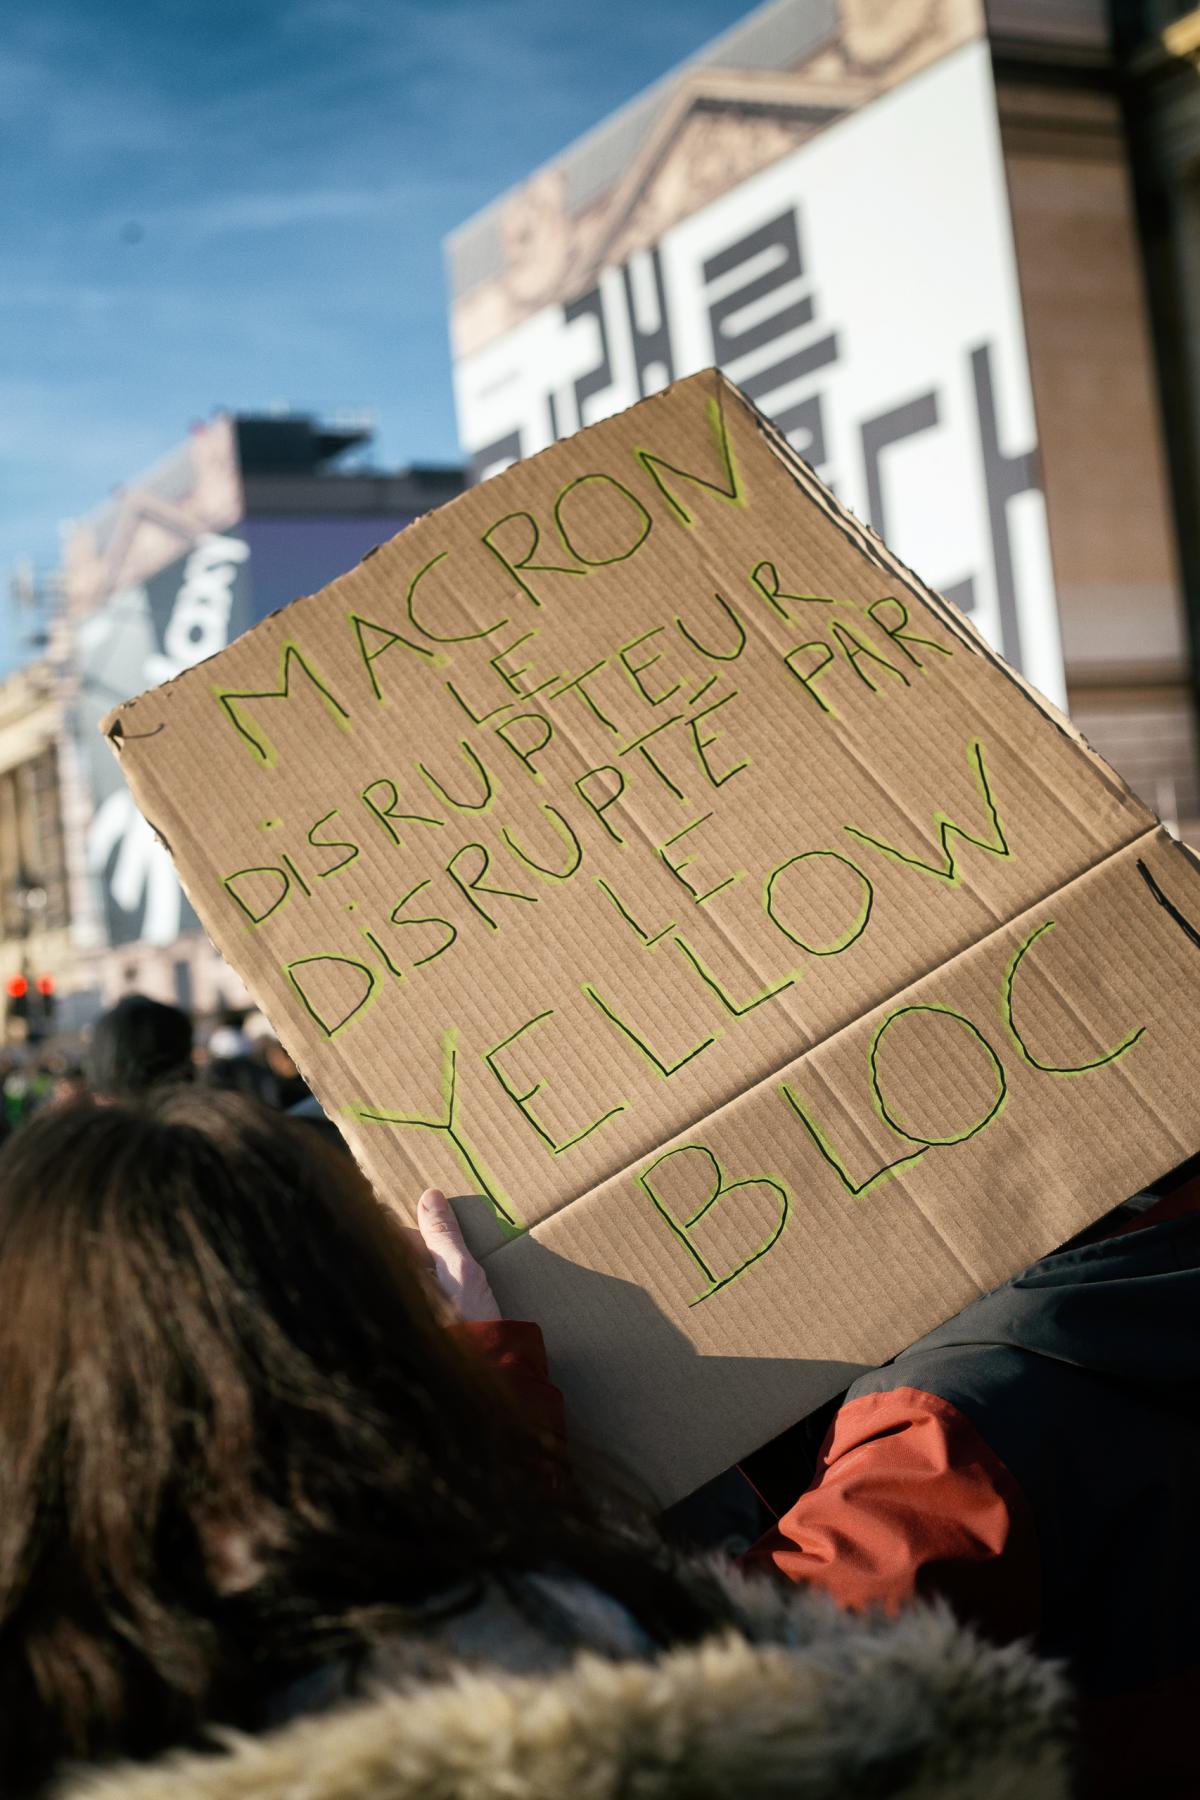 MACRON
LE
DiSRUPTEUR
DiSRUPTÉ PAR
LE
YELLOW
BLOC